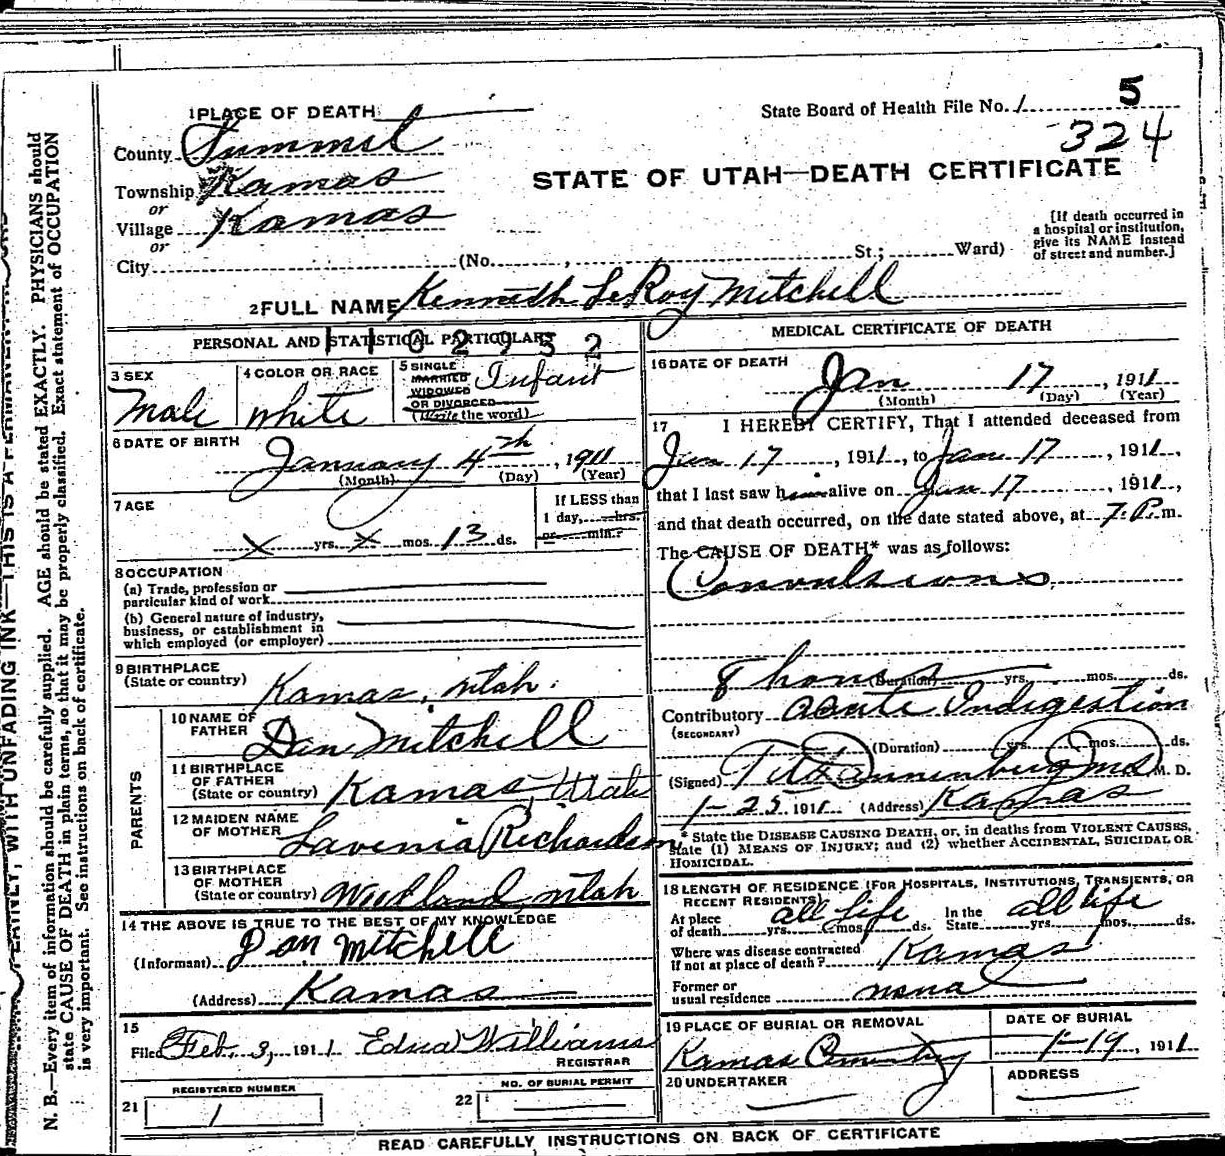 5
State Board of Health File No. 1
324
1 PLACE OF DEATH
County Summit
Township Kamas
or
Village Kamas
or
City (No. , St.; Ward)
STATE OF UTAH—DEATH CERTIFICATE
[If death occurred in
a hospital or institution,
give its NAME instead
of street and number.]
2 FULL NAME Kenneth LeRoy Mitchell
PERSONAL AND STATISTICAL PARTICULARS
11 02932
3 SEX
Male
4 COLOR OR RACE
White
5 SINGLE
MARRIED
WIDOWED
OR DIVORCED
(Write the word)
Infant
6 DATE OF BIRTH
January 4th, 1911
(Month) (Day) (Year)
7 AGE
x yrs. x mos. 13 ds.
If LESS than
1 day, hrs.
or min.?
8 OCCUPATION
(a) Trade, profession or
particular kind of work
(b) General nature of industry,
business, or establishment in
which employed (or employer)
9 BIRTHPLACE
(State or country)
Kamas, Utah.
PARENTS
10 NAME OF
FATHER
Dan Mitchell
11 BIRTHPLACE
OF FATHER
(State or country)
Kamas, Utah
12 MAIDEN NAME
OF MOTHER
Lavenia Richardson
13 BIRTHPLACE
OF MOTHER
(State or country)
Woodland, Utah
14 THE ABOVE IS TRUE TO THE BEST OF MY KNOWLEDGE
(Informant) Dan Mitchell
(Address) Kamas
15
Filed Feb. 3, 1911 Edna Williams
REGISTRAR
REGISTERED NUMBER
21 1
NO. OF BURIAL PERMIT
22
MEDICAL CERTIFICATE OF DEATH
16 DATE OF DEATH
Jan 17, 1911
(Month) (Day) (Year)
17 I HEREBY CERTIFY, That I attended deceased from
Jan 17, 1911, to Jan 17, 1911,
that I last saw him alive on Jan 17, 1911,
and that death occurred, on the date stated above, at 7. P. m.
The CAUSE OF DEATH* was as follows:
Convulsions
8 hours (Duration) yrs. mos. ds.
Contributory Acute Indigestion
(SECONDARY)
(Duration) yrs. mos. ds.
(Signed) Dannenberg MD M. D.
1-25 1911 (Address) Kamas
* State the DISEASE CAUSING DEATH, or, in deaths from VIOLENT CAUSES,
state (1) MEANS OF INJURY; and (2) whether ACCIDENTAL, SUICIDAL OR
HOMICIDAL.
18 LENGTH OF RESIDENCE (FOR HOSPITALS, INSTITUTIONS, TRANSIENTS, OR
RECENT RESIDENTS)
At place
of death all life yrs. mos. ds.
In the
State all life yrs. mos. ds.
Where was disease contracted
if not at place of death? Kamas
Former or
usual residence none
19 PLACE OF BURIAL OR REMOVAL
Kamas Cemetery
DATE OF BURIAL
1-19, 1911
20 UNDERTAKER
ADDRESS
READ CAREFULLY INSTRUCTIONS ON BACK OF CERTIFICATE
WITH UNFADING INK—THIS IS A PERMANENT
N. B.—Every item of information should be carefully supplied. AGE should be stated EXACTLY. PHYSICIANS should
state CAUSE OF DEATH in plain terms, so that it may be properly classified. Exact statement of OCCUPATION
is very important. See instructions on back of certificate.